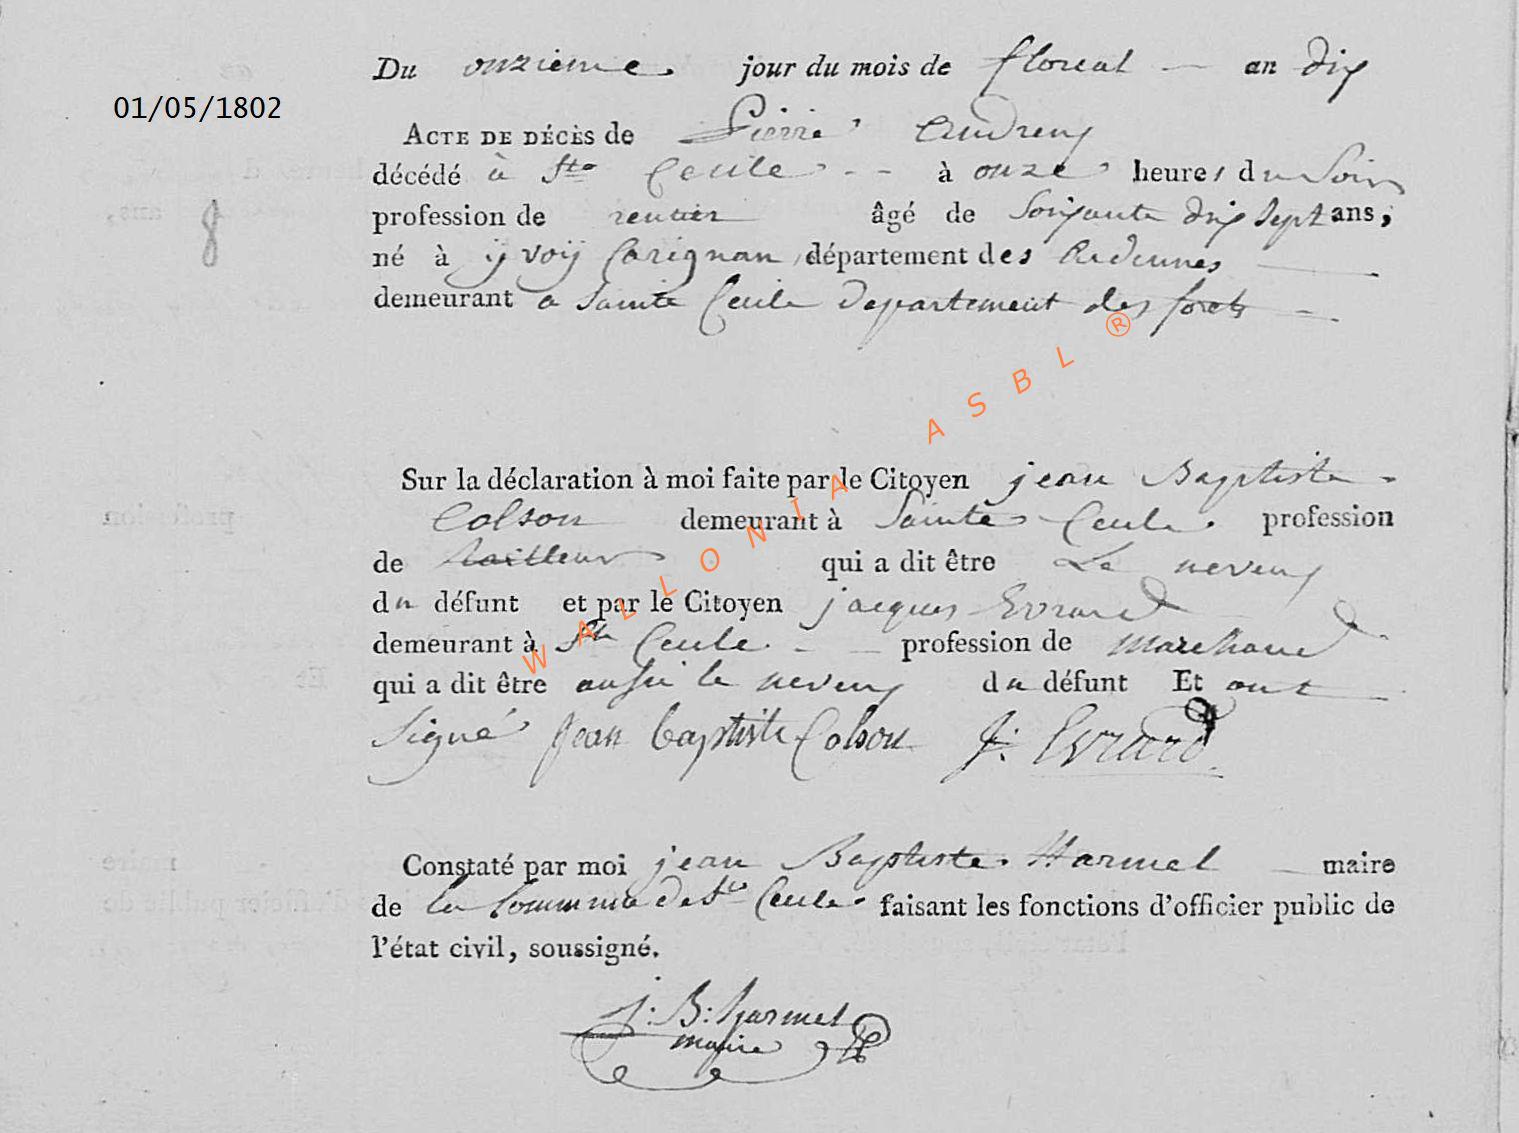 Du onzieme jour du mois de floreal an dix
01/05/1802
ACTE DE DÉCÈS de Pierre Andreux
décédé à Ste Cecile à onze heures du Soir
profession de rentier âgé de Soixante dix Sept ans,
8
né à yvoy Carignan département des Ardennes
demeurant a Sainte Cecile departement des forets
Sur la déclaration à moi faite par le Citoyen jean Baptiste
Colson demeurant à Sainte Cecile profession
de tailleur qui a dit être Le neveux
du défunt et par le Citoyen jacques Evrard
demeurant à Ste Cecile profession de marchand
qui a dit être aussi le neveux du défunt Et ont
Signé Jean baptiste Colson J: Evrard
Constaté par moi jean Baptiste Harmel maire
de la Commune de Ste Cecile faisant les fonctions d'officier public de
l'état civil, soussigné.
j: B: harmel
maire
WALLONIA ASBL ®